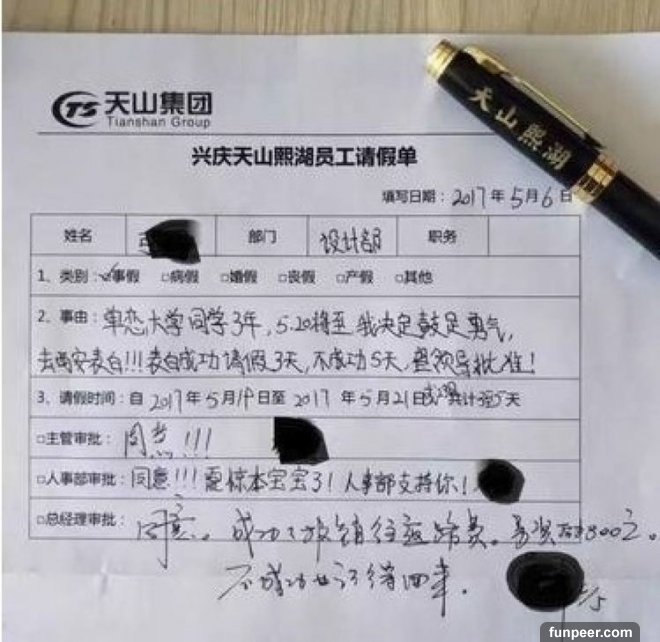 TS 天山集团
Tianshan Group
天山熙湖
兴庆天山熙湖员工请假单
填写日期：2017年5月6日
姓名 部门 设计部 职务
1、类别：☑事假 □病假 □婚假 □丧假 □产假 □其他
2、事由：单恋大学同学3年，5.20将至 我决定鼓足勇气，
去西安表白!!!表白成功请假3天，不成功5天，望领导批准!
3、请假时间：自2017年5月19日至2017年5月21日 共计3至5天
□主管审批：同意!!!
□人事部审批：同意!!! 惊本宝宝了! 人事部支持你!
□总经理审批：同意。成功了报销往返路费。800元。
不成功 回来.
funpeer.com